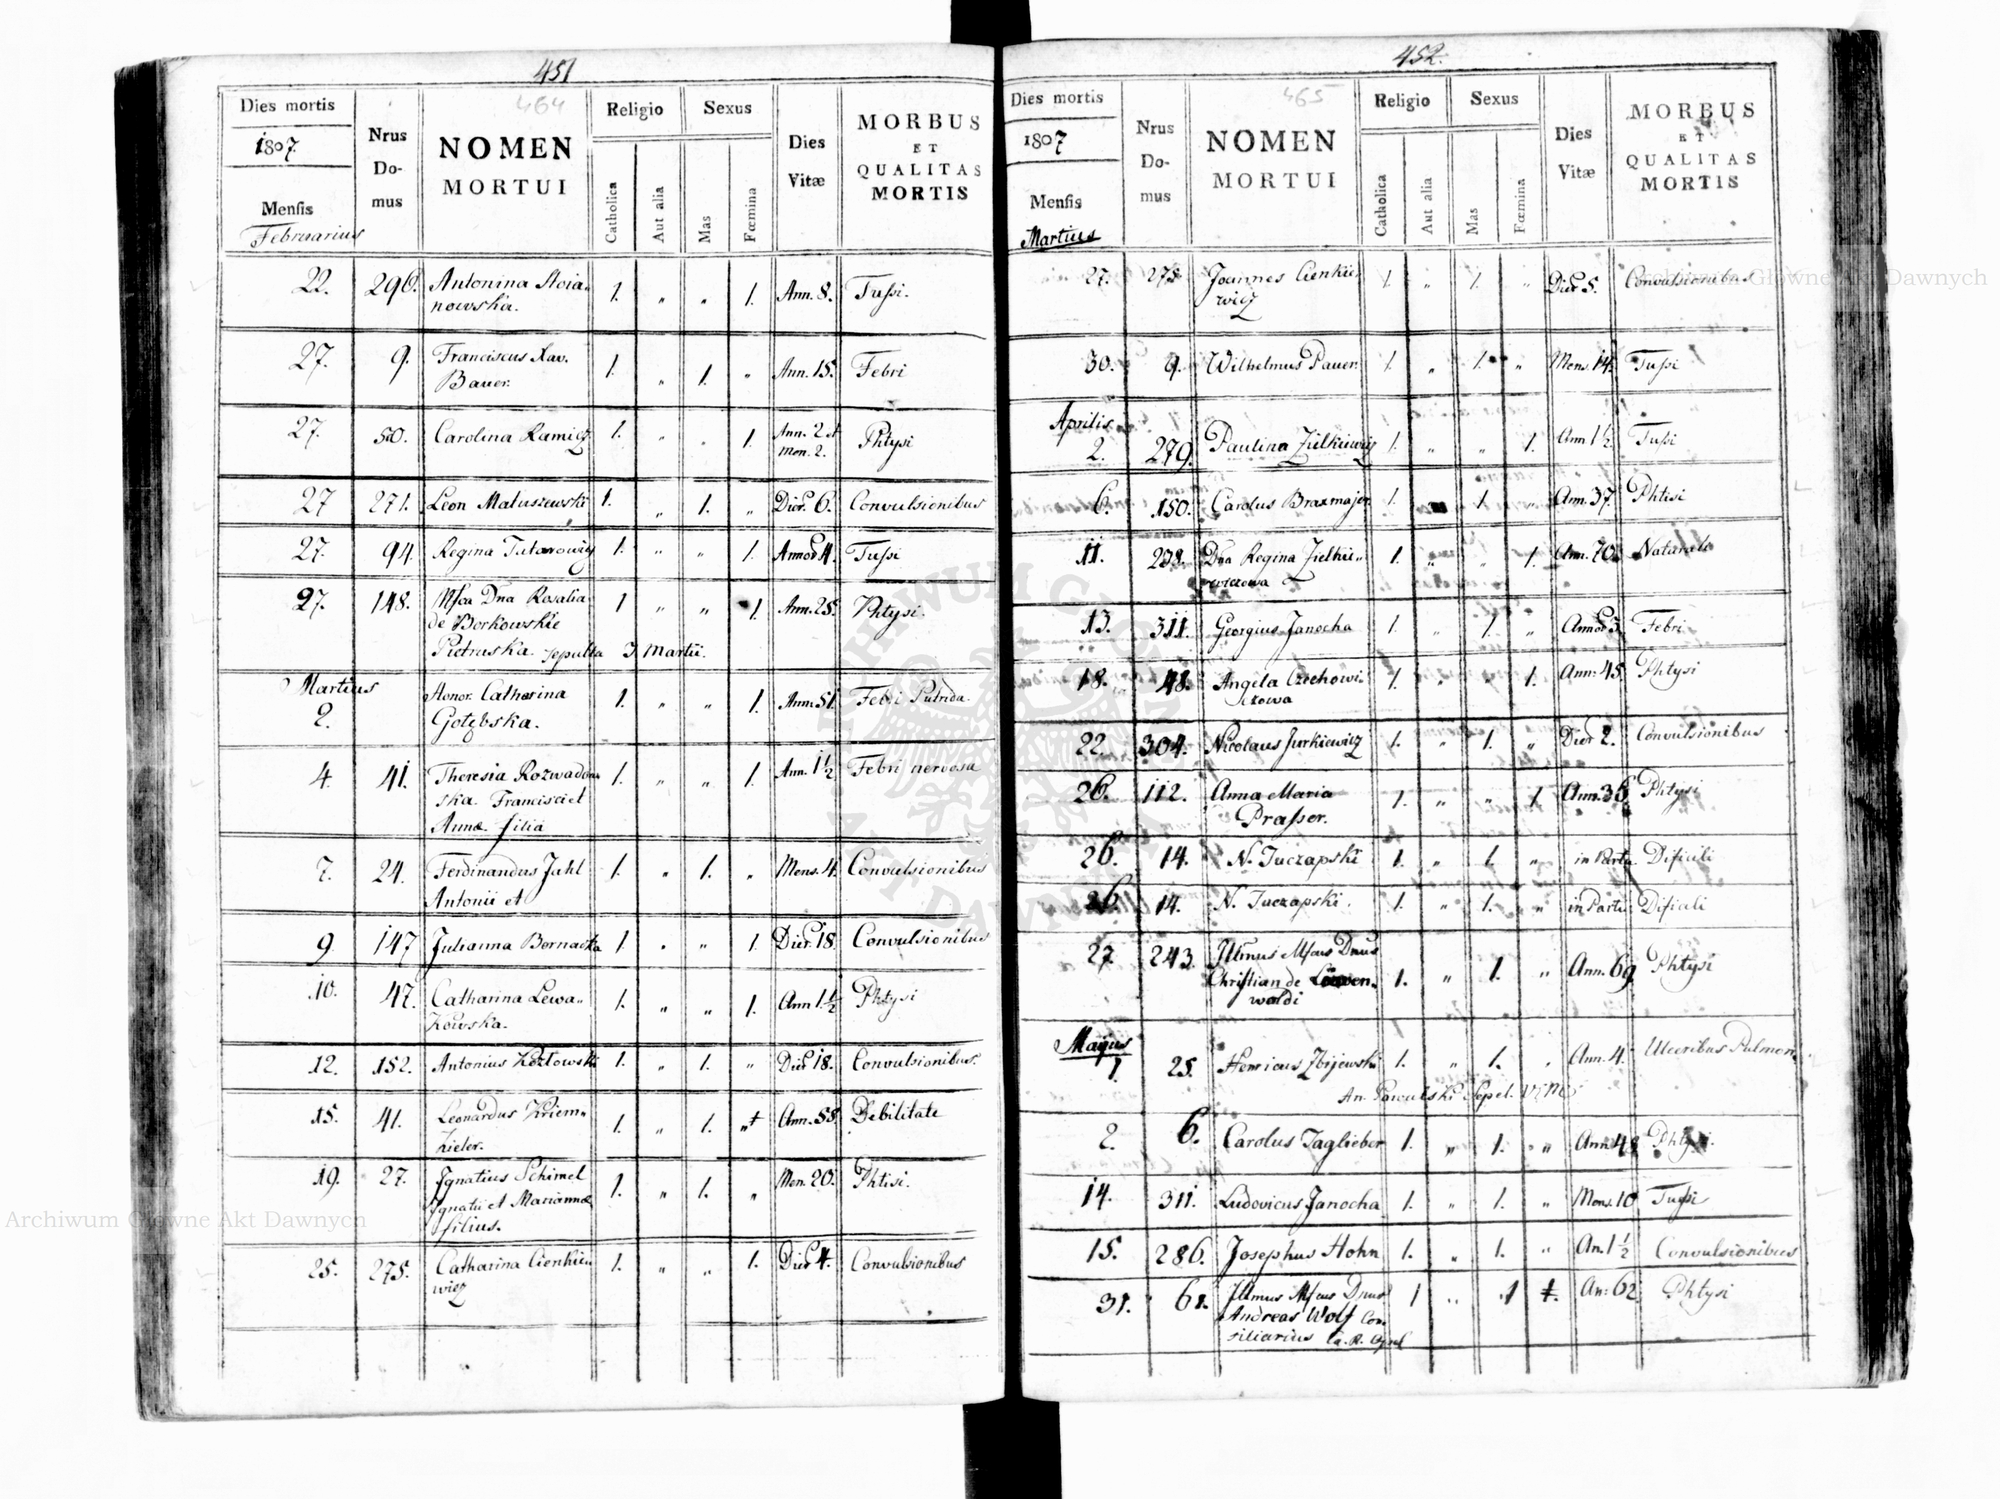 451
464
Dies mortis
1807.
Mensis
Februarius
Nrus
Do-
mus
NOMEN
MORTUI
Religio
Catholica
Aut alia
Sexus
Mas
Fœmina
Dies
Vitæ
MORBUS
ET
QUALITAS
MORTIS
22. 296. Antonina Stoia- 1. " " 1. Ann. 8. Tussi.
nowska.
27. 9. Franciscus Xav. 1. " 1. " Ann. 15. Febri
Bauer.
27. 50. Carolina Ramicz 1. " " 1. Ann. 2 et Phtysi
Mon. 2.
27 271. Leon Matuszewski 1. " 1. " Dier. 6. Convulsionibus
27. 94. Regina Tutorowicz 1. " " 1. Annor 4. Tussi
27. 148. Mfca Dna Rosalia 1 " " 1. Ann. 25. Phtysi.
de Borkowskie
Pietruska. sepulta 3 Martii.
Martius
2. Honor. Catharina 1. " " 1. Ann. 51. Febri Putrida.
Gołębska.
4. 41. Theresia Rozwadow 1. " " 1. Ann. 1½ Febri nervosa
ska. Francisci et
Annæ filia
7. 24. Ferdinandus Jahl 1. " 1. " Mens. 4. Convulsionibus
Antonii et
9. 147 Julianna Bernacka 1. " " 1. Dier. 18. Convulsionibus
10. 47. Catharina Lewa- 1. " " 1. Ann 1½ Phtysi
kowska.
12. 152. Antonius Kozłowski 1. " 1. " Dier 18. Convulsionibus.
15. 41. Leonardus Kriem- 1. " 1. " Ann. 58. Debilitate
hieler.
19. 27. Ignatius Schimel 1. " 1. " Men. 20. Phtisi.
Ignatii et Mariannæ
filius.
25. 275. Catharina Cienkie- 1. " " 1. Dier 4. Convulsionibus
wicz
452.
465
Dies mortis
1807
Mensis
Martius
Nrus
Do-
mus
NOMEN
MORTUI
Religio
Catholica
Aut alia
Sexus
Mas
Fœmina
Dies
Vitæ
MORBUS
ET
QUALITAS
MORTIS
27. 275 Joannes Cienkie- 1. " 1. " Dier 5. Convulsionibus
wicz
30. 9. Wilhelmus Pauer. 1. " 1. " Mens. 14. Tussi
Aprilis
2. 279. Paulina Zielkiewicz 1. " " 1. Ann 1½. Tussi
6. 150. Carolus Braxmajer 1. 1. " Ann. 37. Phtisi
11. 278. Dna Regina Zielkie- 1. " " 1. Ann. 70. Naturali
wiczowa
13. 311. Georgius Janocha 1. " 1. " Annor 3. Febri
18. 48. Angela Czechowi- 1. " " 1. Ann: 45. Phtysi
czowa
22. 304. Nicolaus Jurkiewicz 1. " 1. " Dier 2. Convulsionibus
26. 112. Anna Maria 1. " " 1. Ann. 36. Phtysi
Prasser.
26. 14. N. Tuczapski 1. " 1. " in Partu Dificili
26. 14. N. Tuczapski. 1. " 1. " in Partu Dificili
27. 243. Illmus Mfcus Dnus
Christian de Löwen- 1. " 1. " Ann. 69. Phtysi
waldi
Majus
1. 25. Henricus Zbijewski 1. " 1. " Ann. 4. Ulceribus Pulmon.
2. 6. Carolus Taglieber 1. " 1. " Ann. 48 Phtysi.
14. 311. Ludovicus Janocha 1. " 1. " Mens. 10 Tussi
15. 286. Josephus Hohn 1. " 1. " An. 1½ Convulsionibus
31. 61. Illmus Mfcus Dnus 1 " 1 An: 62 Phtysi
Andreas Wolf Con-
siliarius
Archiwum Główne Akt Dawnych
Archiwum Główne Akt Dawnych
ARCHIWUM GŁÓWNE AKT DAWNYCH